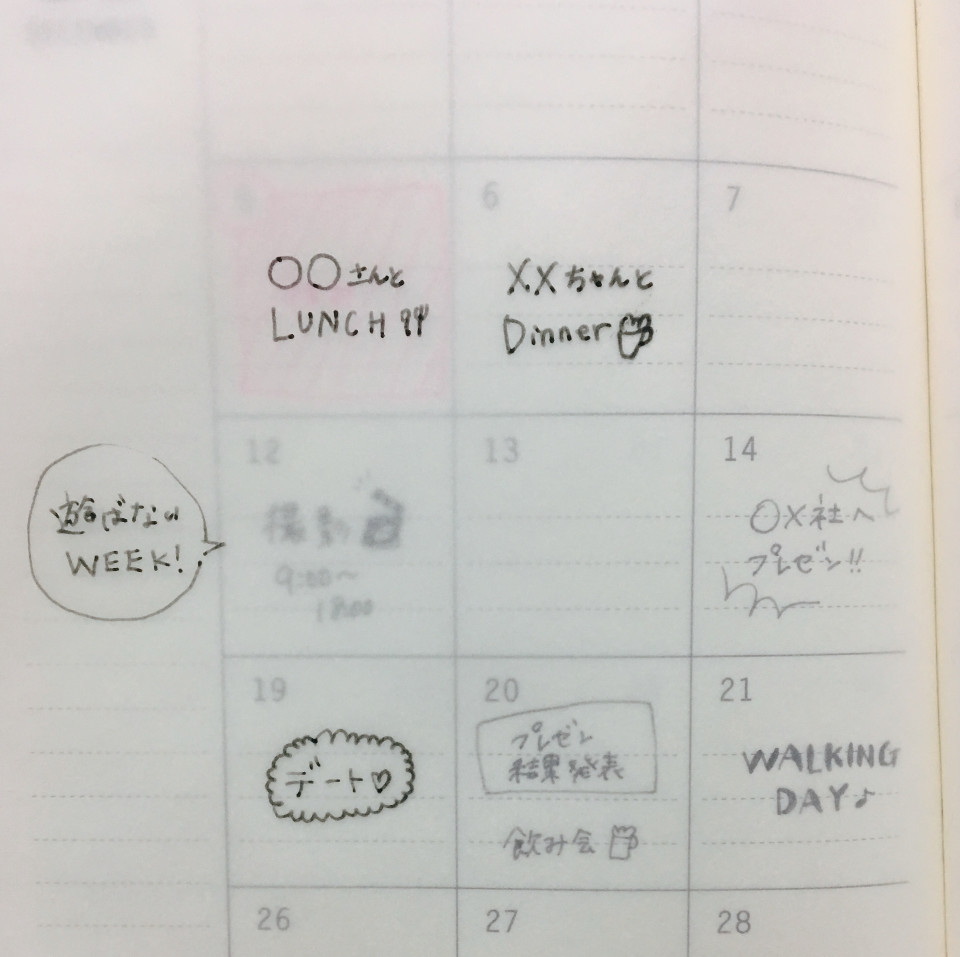 5
6
7
〇〇さんと
LUNCH
XXちゃんと
Dinner
12
13
14
遊ばない
WEEK!
撮影
9:00〜
18:00
〇X社へ
プレゼン!!
19
20
21
デート♡
プレゼン
結果発表
飲み会
WALKING
DAY♪
26
27
28